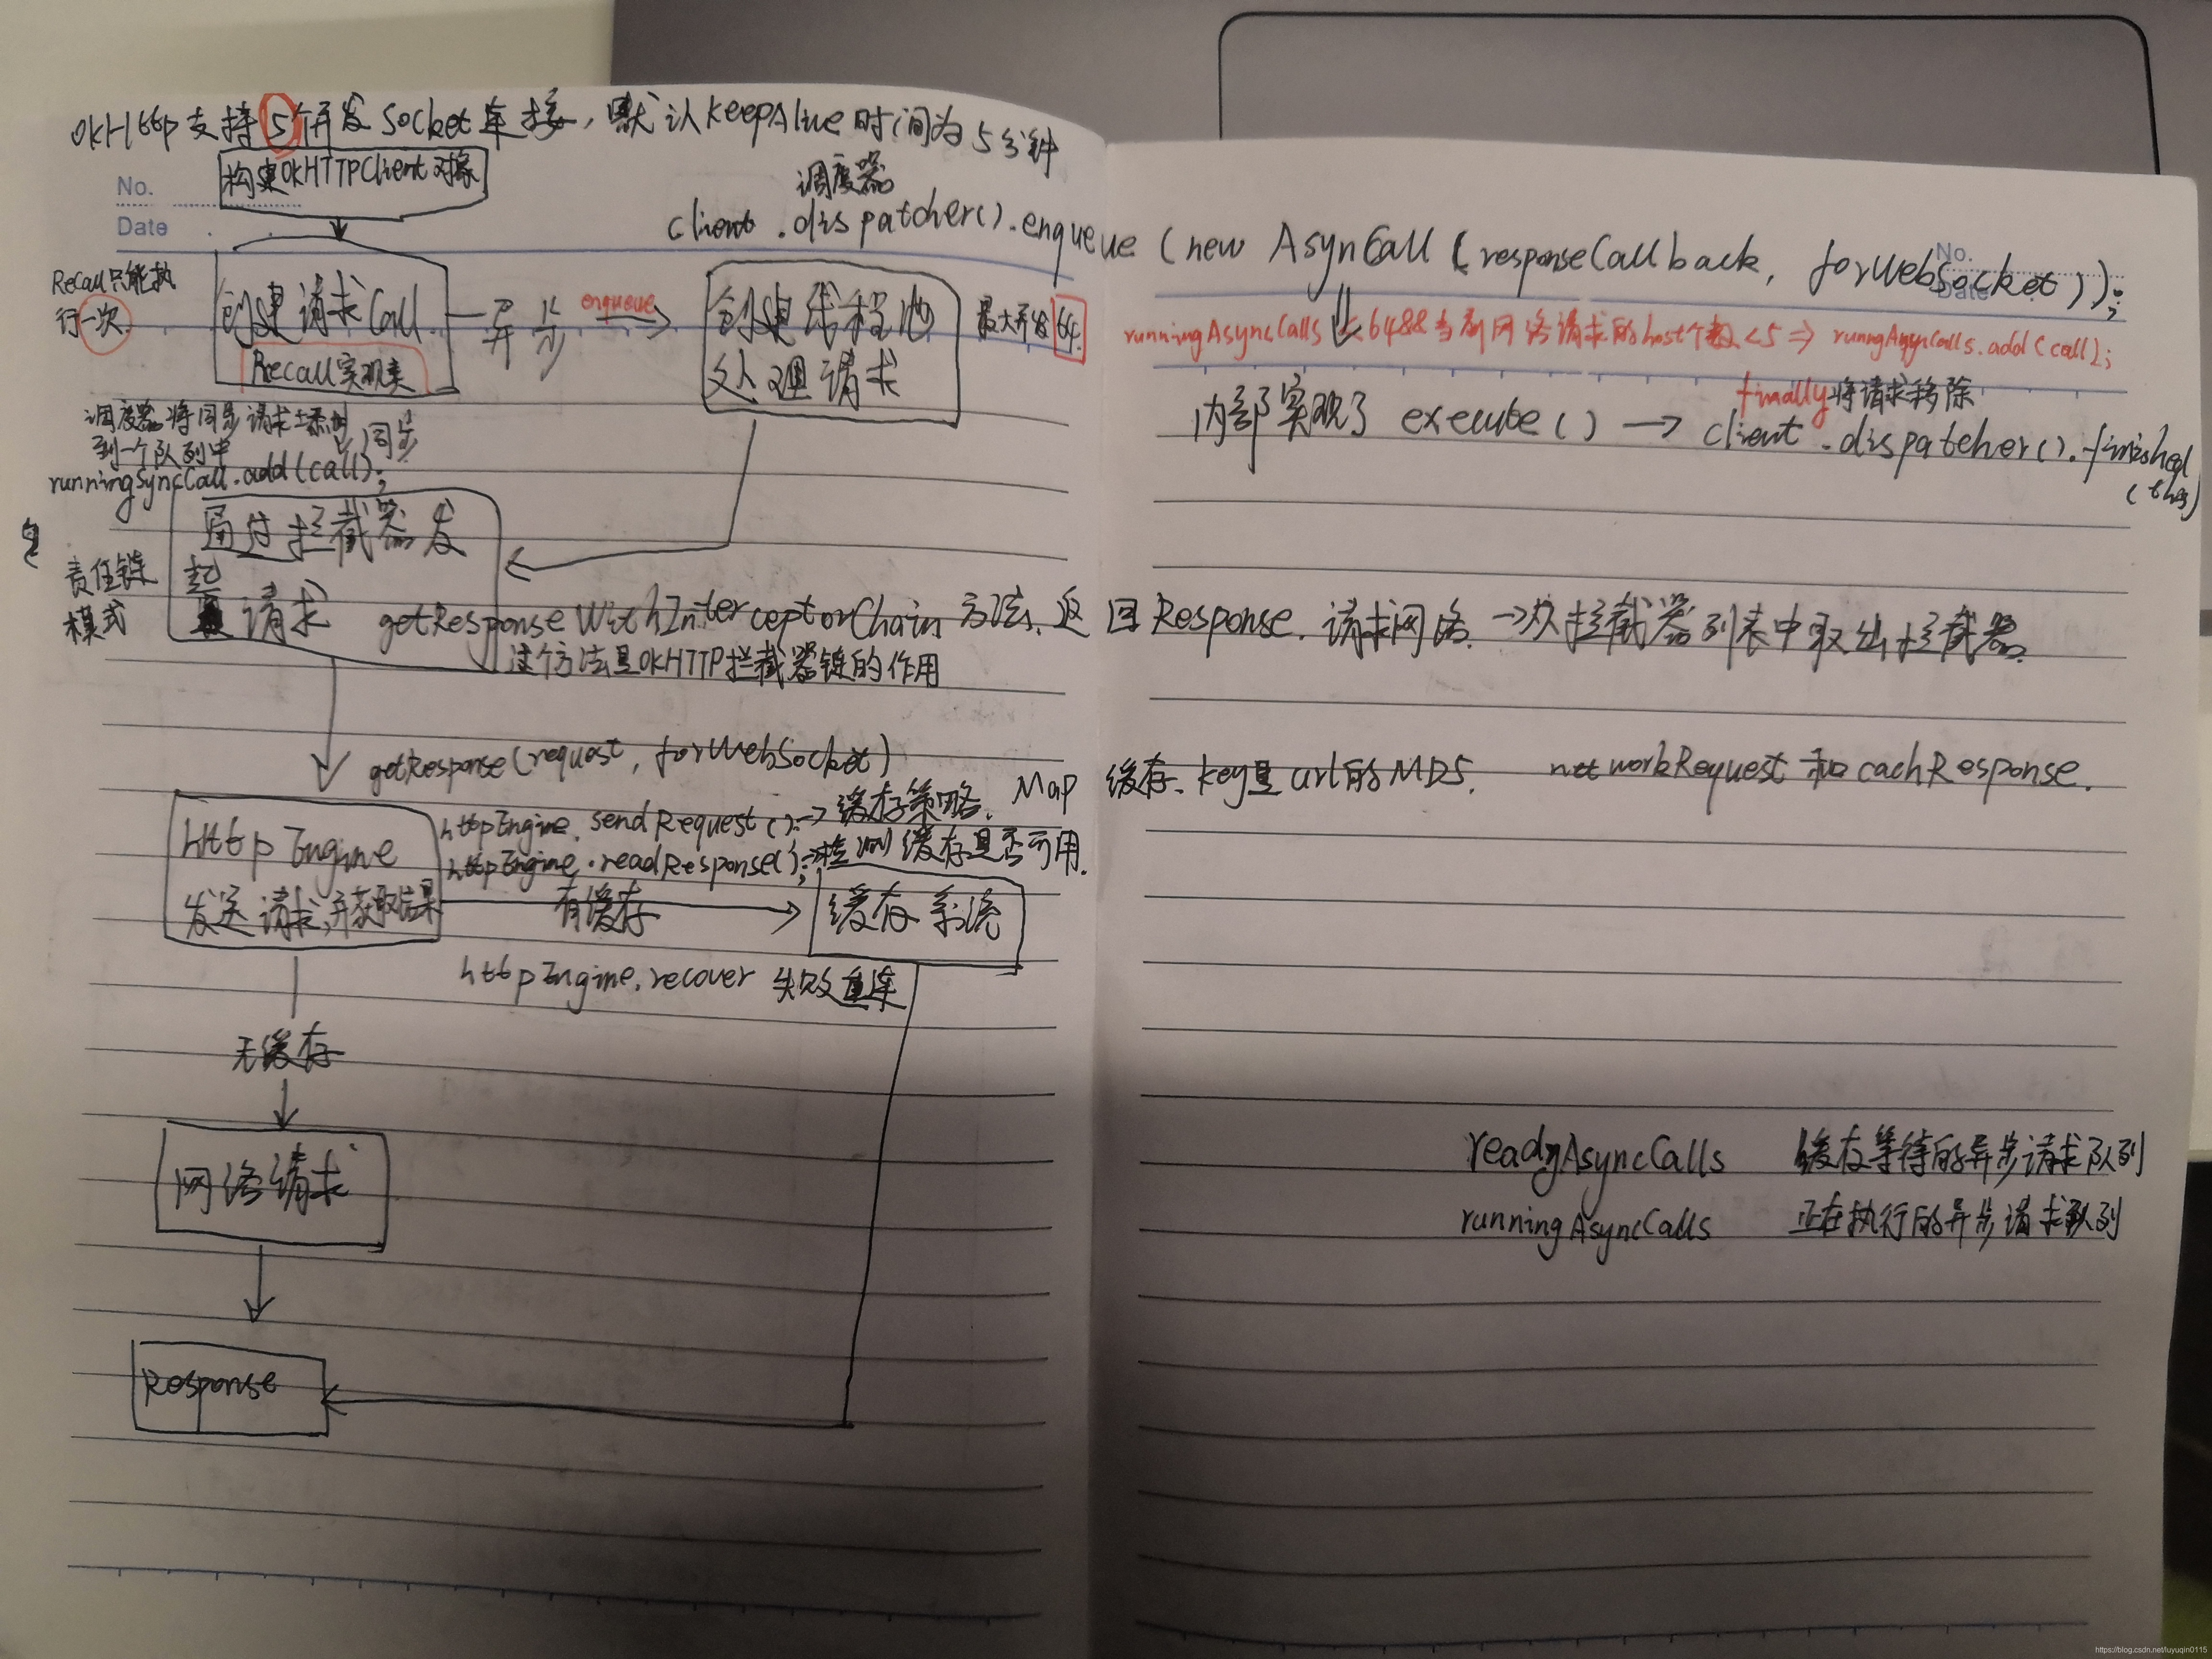 okHttp支持5个并发Socket连接，默认keepAlue时间为5分钟
构建OKHTTPClient对象
No.
Date
调度器
client.dispatcher().enqueue(new AsynCall(responseCallback, forWebSocket));
No.
Date
Recall只能执
行一次
创建请求Call
Recall实现类
异步
enqueue
创建线程池
处理请求
最大并发64
runningAsyncCalls <64&&当前网络请求的host个数<5 => runngAsyncCalls.add(call);
内部实现了 execute() → client.dispatcher().finished
(this)
finally将请求移除
调度器将同步请求添加
到一个队列中
runningSyncCall.add(call);
同步
通过拦截器发
起请求
责任链
模式
getResponseWithInterceptorChain方法、返回Response. 请求网络. →次拦截器列表中取出拦截器.
这个方法是OKHTTP拦截器链的作用
getResponse(request, forWebSocket)
httpEngine
发送请求,并获取结果
httpEngine.sendRequest();→缓存策略. Map 缓存、key是url的MD5. networkRequest和cachResponse.
httpEngine.readResponse();→检测缓存是否可用.
有缓存
缓存系统
httpEngine.recover 失败重连
无缓存
网络请求
readyAsyncCalls 缓存等待的异步请求队列
runningAsyncCalls 正在执行的异步请求队列
Response
https://blog.csdn.net/luyuqin0115